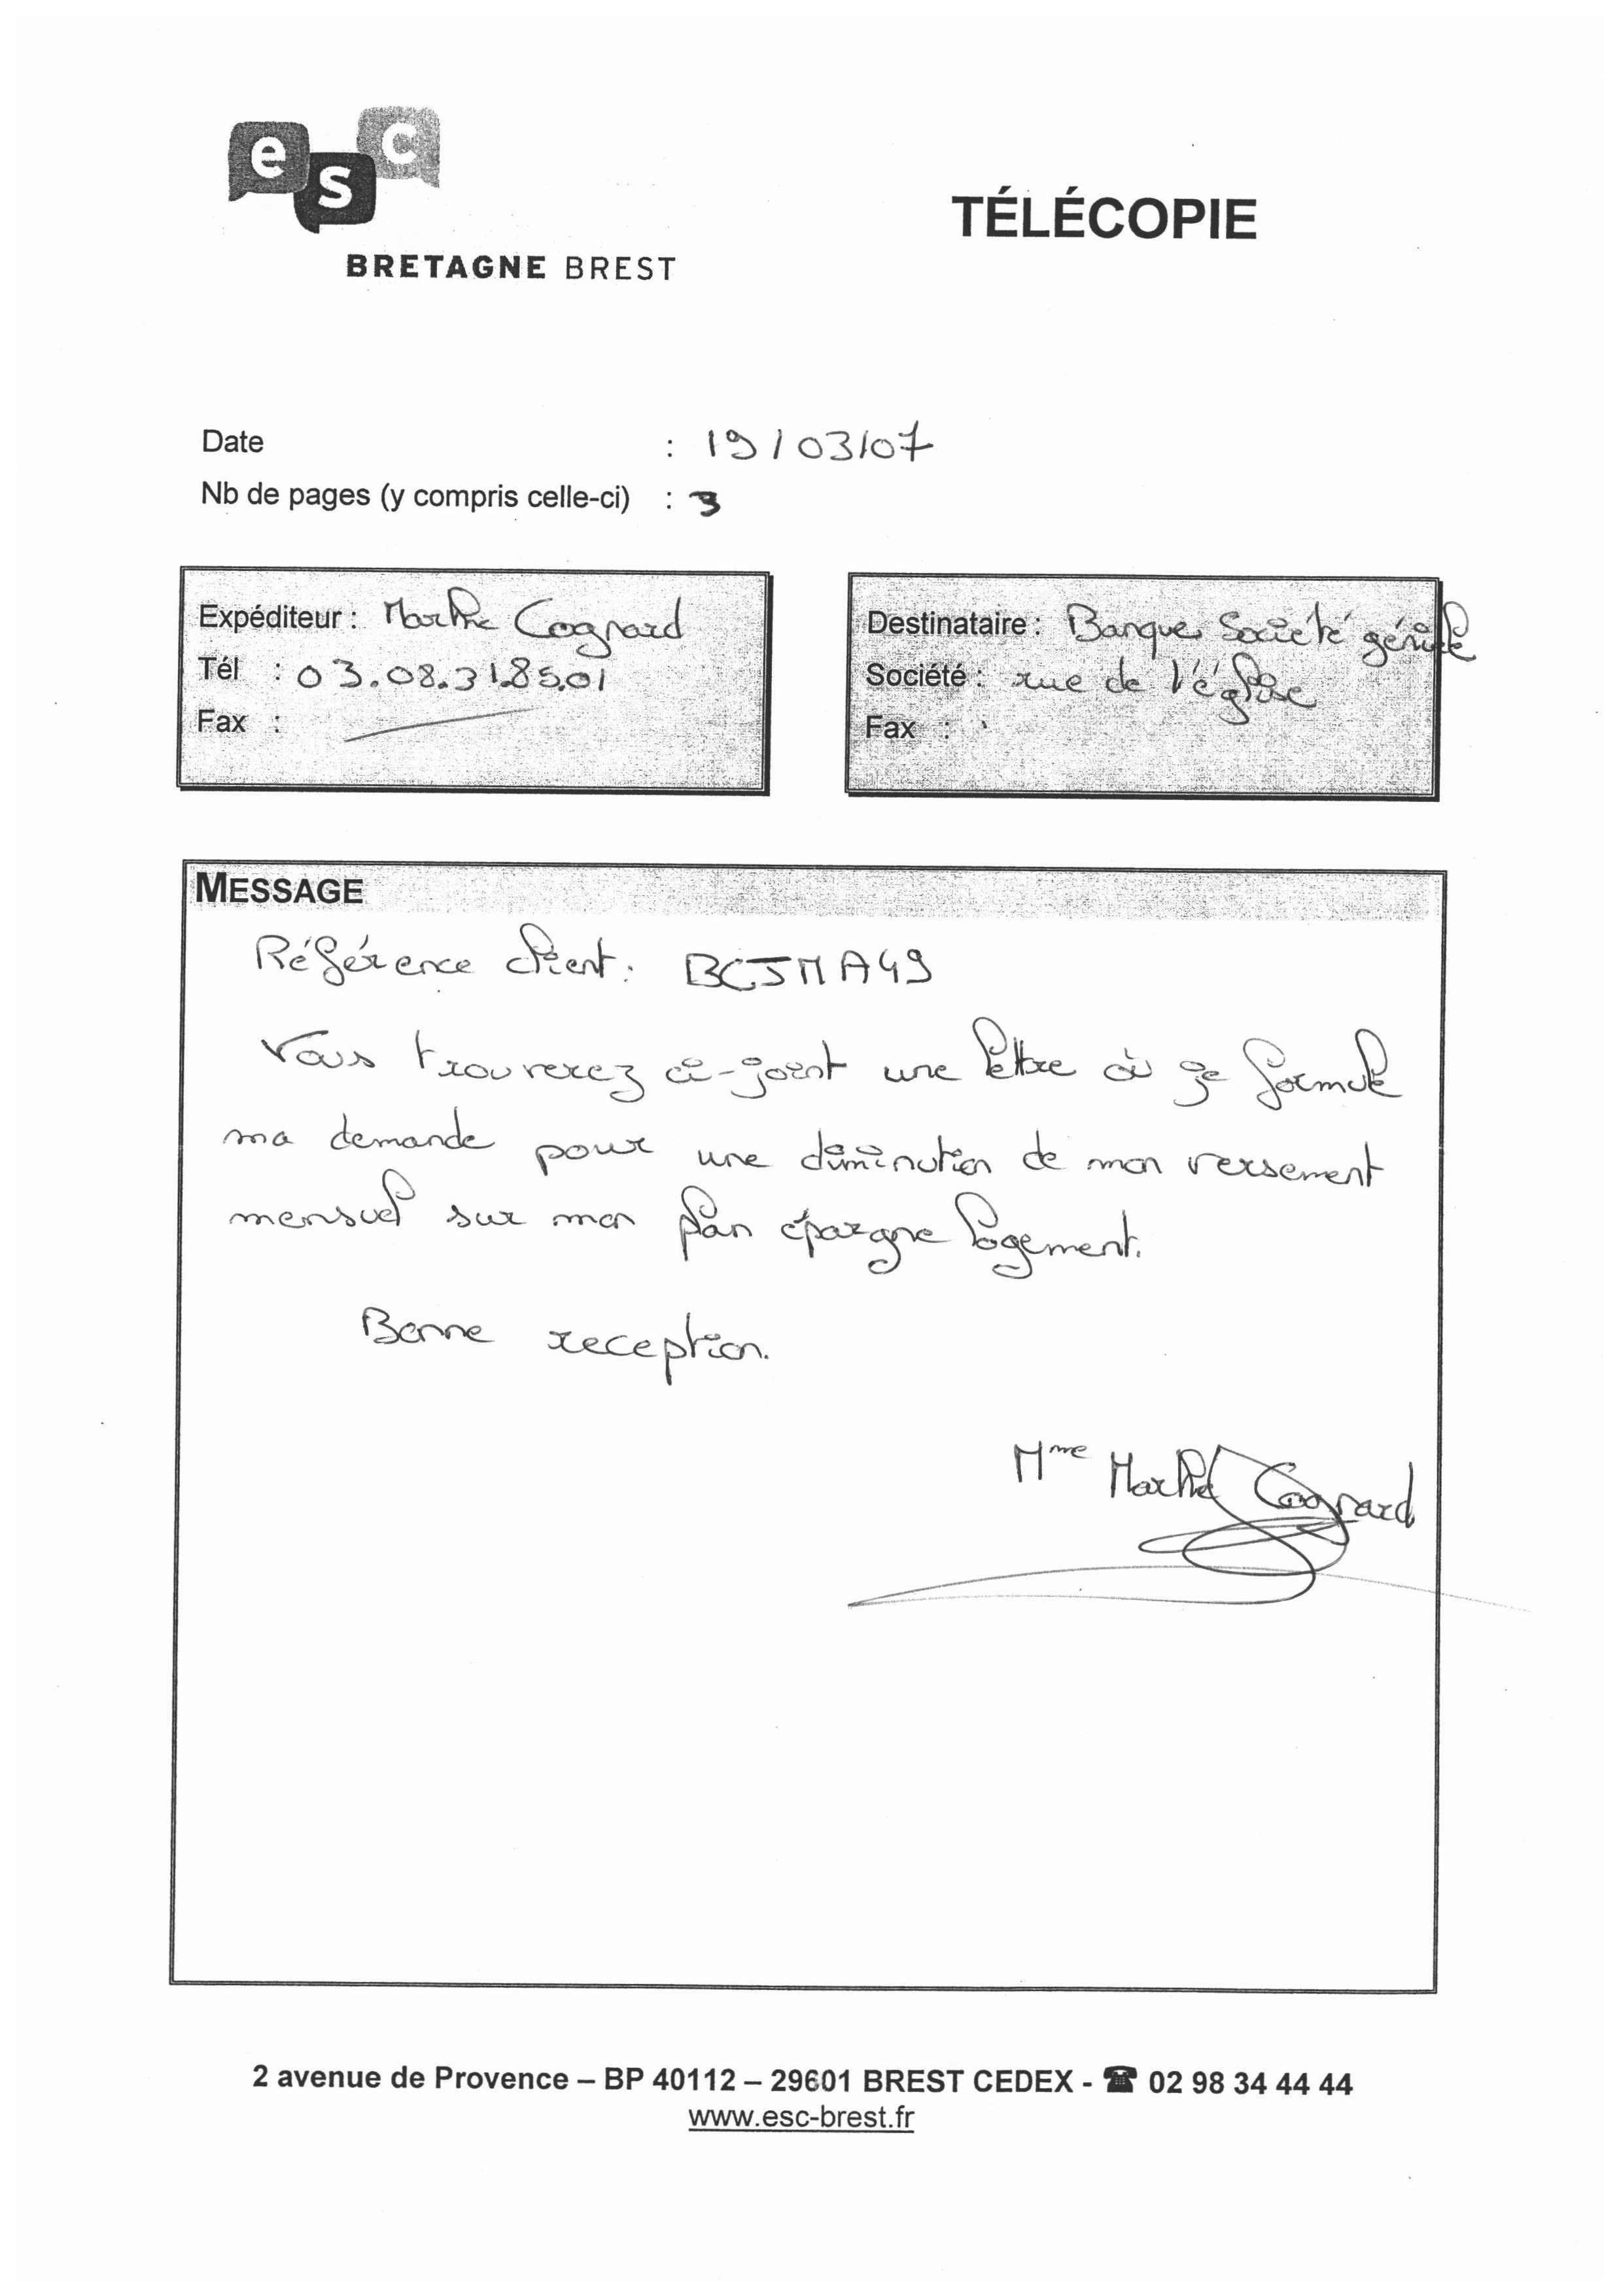 esc
BRETAGNE BREST
TÉLÉCOPIE
Date : 19/03/07
Nb de pages (y compris celle-ci) : 3
Expéditeur : Marthe Cognard
Tél : 03.08.31.85.01
Fax :
Destinataire : Banque Société générale
Société : rue de l'église
Fax :
MESSAGE
Référence client : BCJMA49
Vous trouverez ci-joint une lettre où je formule
ma demande pour une diminution de mon versement
mensuel sur mon plan épargne logement.
Bonne reception.
Mme Marthe Cognard
2 avenue de Provence – BP 40112 – 29601 BREST CEDEX - ☎ 02 98 34 44 44
www.esc-brest.fr